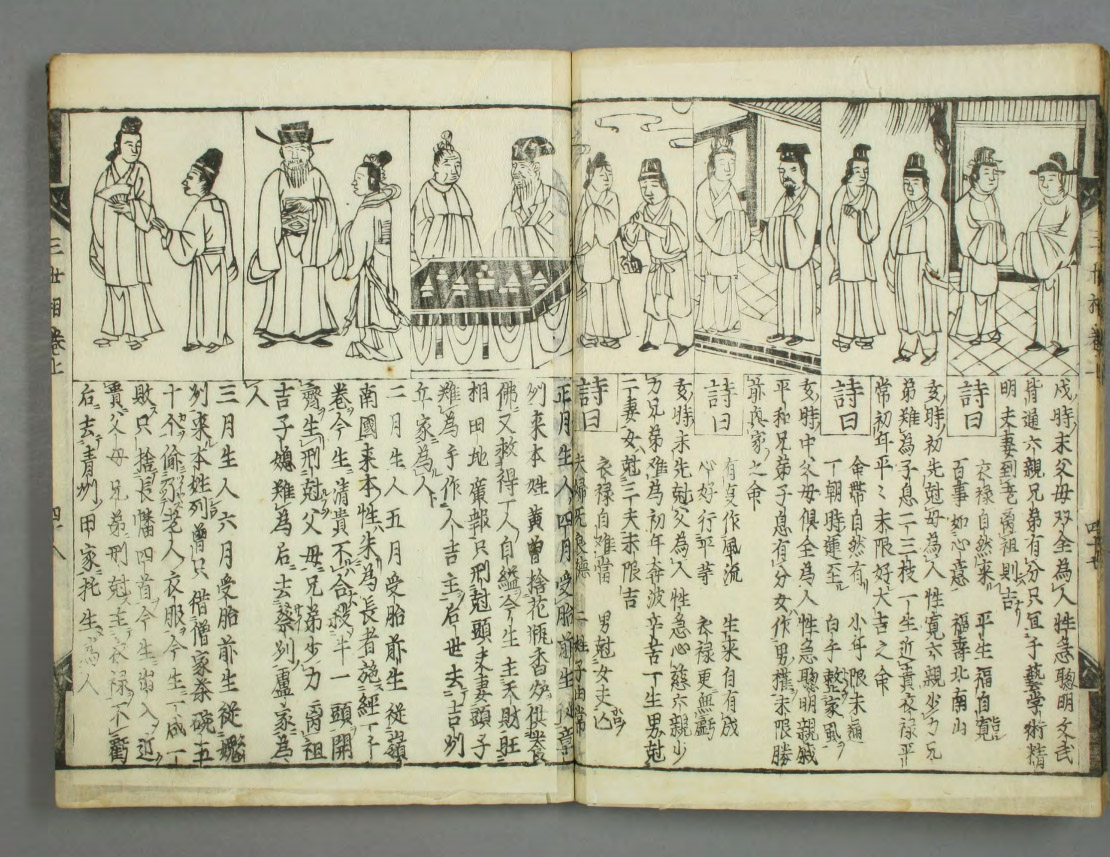 戌時末父母双全為人性急聡明文武
皆通六親兄弟有分只宜手藝學術精
明末妻到老离祖則吉
詩曰
衣禄自然来 平生福自寛
百事如心意 福壽北南山
亥時初先尅母為人性寛六親少力兄
弟難為子息一二三枝一生近貴衣禄平
常初年平〻末限好大吉之命
詩曰
金帶自然有 小年限末
一朝時運至 白手整家風
亥時中父母俱全為人性急聡明親戚
平和兄弟子息有分女作男權末限勝
前興家之命
詩曰
有夏作風流 生来自有成
心好行平等 衣禄更無虧
亥時末先尅父為人性急心慈六親少
力兄弟难為初年奔波辛苦一生男尅
二妻女尅三夫末限吉
詩曰
衣禄自難當 男尅女夫凶
正月生人四月受胎前生従章
州来本姓黄曽捨花瓶香炉供養
佛又救得一人自縊今生主天財旺
相田地廣報只刑尅頭夫妻頭子
難為手作人吉主后世去吉州
立家為人
二月生人五月受胎前生従嶺
南國来本性朱為長者施經一千
卷今生清貴不合殺牛一頭開
齋生刑尅父母兄弟少力离祖
吉子媳難為后去蔡州盧家為
人
三月生人六月受胎前生従
州来本姓列曽只借僧家茶碗五
十人偷老人衣服今生一成一
敗只捨長幡四首今生出入近
貴父母兄弟刑尅主衣禄不虧
后去青州田家托生為人
三世相卷上
四十八